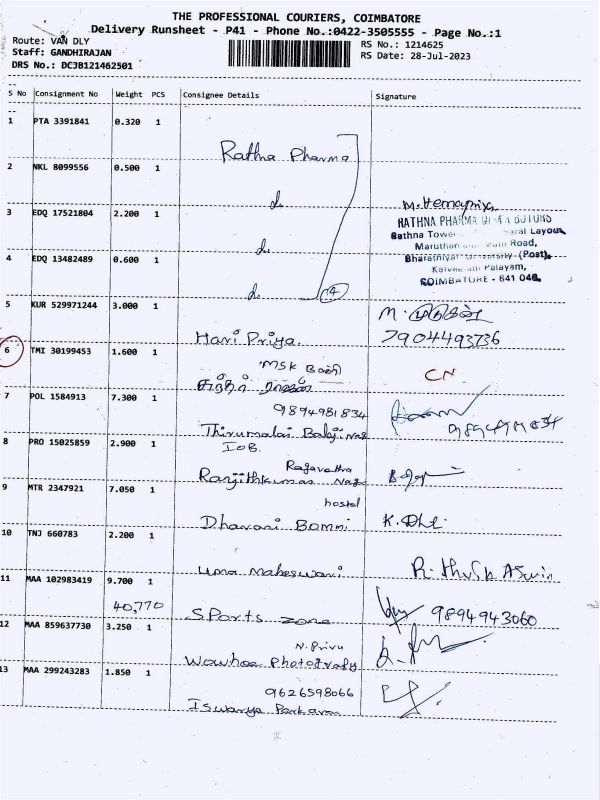 THE PROFESSIONAL COURIERS, COIMBATORE
Delivery Runsheet - P41 - Phone No.:0422-3505555 - Page No.:1
Route: VAN DLY
Staff: GANDHIRAJAN
DRS No.: DCJB121462501
RS No.: 1214625
RS Date: 28-Jul-2023
S No Consignment No Weight PCS Consignee Details Signature
1 PTA 3391841 0.320 1
Ratha Pharma
2 NKL 8099556 0.500 1
do
M. Hemapriya
3 EDQ 17521804 2.200 1
RATHNA PHARMA
Rathna Tower Layout,
do
Maruthamalai Main Road,
4 EDQ 13482489 0.600 1
Bharathiyar University (Post),
Palayam,
COIMBATORE - 641 046.
do 4
5 KUR 529971244 3.000 1
M.
Hari Priya. 7904493736
6 TMI 30199453 1.600 1
MSK
CN
7 POL 1584913 7.300 1
9894981834
Thirumalai Balaji
8 PRO 15025859 2.900 1
IOB
Ragavatha
Ranjithkumar
9 MTR 2347921 7.050 1
hostel
Dharani Bommi K.
10 TNJ 660783 2.200 1
Uma Maheswari R. Aswin
11 MAA 102983419 9.700 1
40,770
Sports zone 9894943060
12 MAA 859637730 3.250 1
N. Priru
Wowhoo Photography
13 MAA 299243283 1.850 1
9626598066
Iswarya